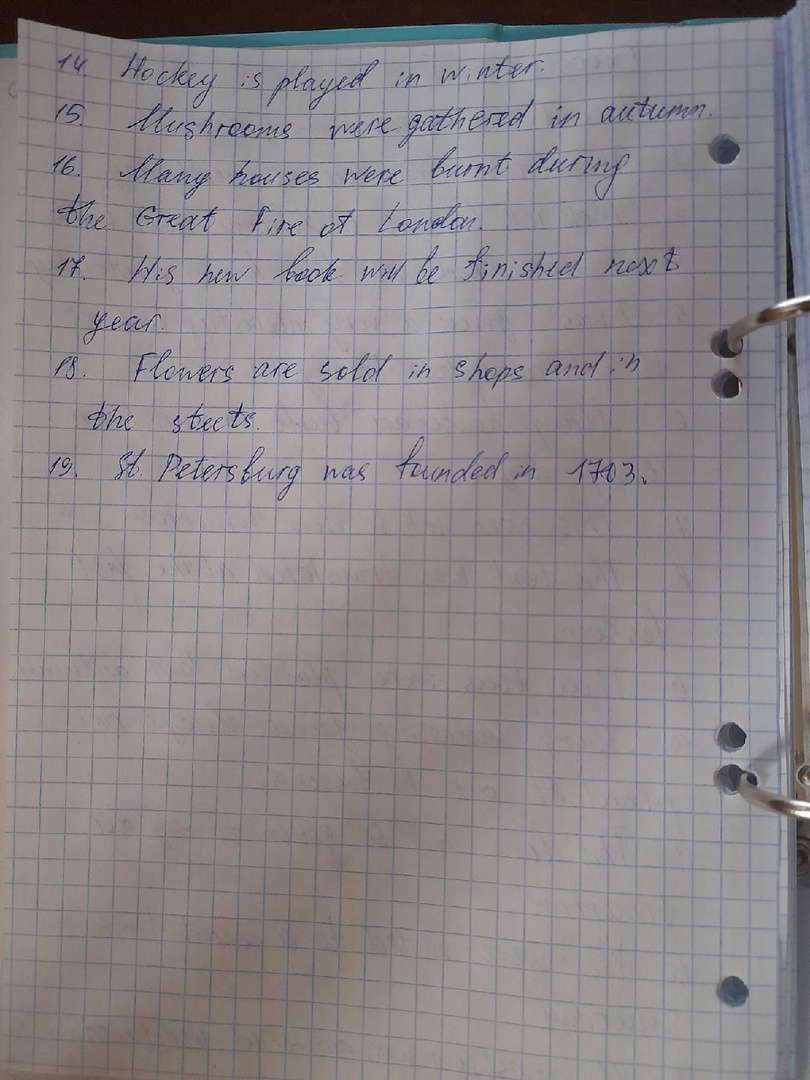 14. Hockey is played in winter.
15. Mushrooms were gathered in autumn.
16. Many houses were burnt during
the Great Fire of London.
17. His new book will be finished next
year.
18. Flowers are sold in shops and in
the steets.
19. St. Petersburg was founded in 1703.